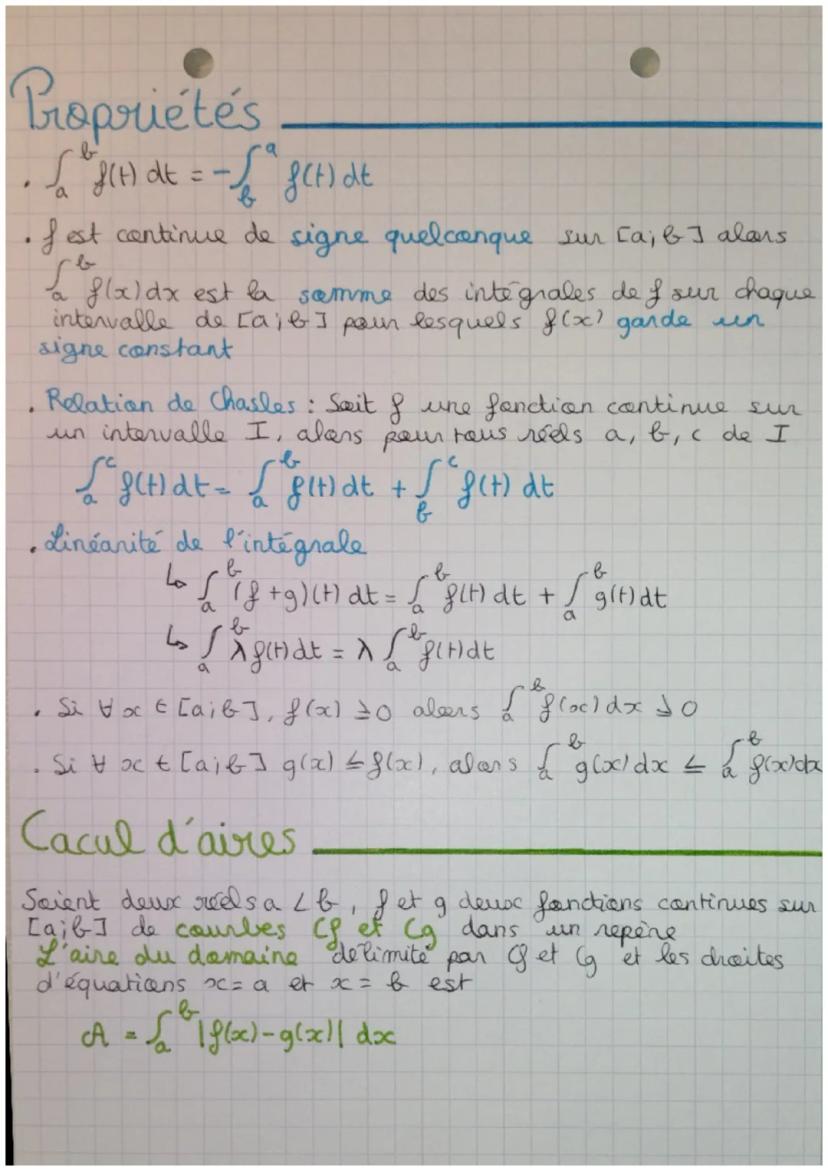 Propriétés
. ∫ₐᵇ f(t) dt = -∫_b^a f(t) dt
. f est continue de signe quelconque sur [a;b] alors
∫ₐᵇ f(x)dx est la somme des intégrales de f sur chaque
intervalle de [a;b] pour lesquels f(x) garde un
signe constant
. Relation de Chasles : Soit f une fonction continue sur
un intervalle I, alors pour tous réels a, b, c de I
∫ₐᶜ f(t) dt = ∫ₐᵇ f(t) dt + ∫_b^c f(t) dt
. Linéarité de l'intégrale
↳ ∫ₐᵇ (f+g)(t) dt = ∫ₐᵇ f(t) dt + ∫ₐᵇ g(t) dt
↳ ∫ₐᵇ λf(t)dt = λ ∫ₐᵇ f(t)dt
. Si ∀ x ∈ [a;b], f(x) ≥ 0 alors ∫ₐᵇ f(x) dx ≥ 0
. Si ∀ x ∈ [a;b] g(x) ≤ f(x), alors ∫ₐᵇ g(x) dx ≤ ∫ₐᵇ f(x)dx
Cacul d'aires
Soient deux réels a < b, f et g deux fonctions continues sur
[a;b] de courbes Cf et Cg dans un repère
L'aire du domaine délimité par Cf et Cg et les droites
d'équations x = a et x = b est
A = ∫ₐᵇ |f(x)-g(x)| dx